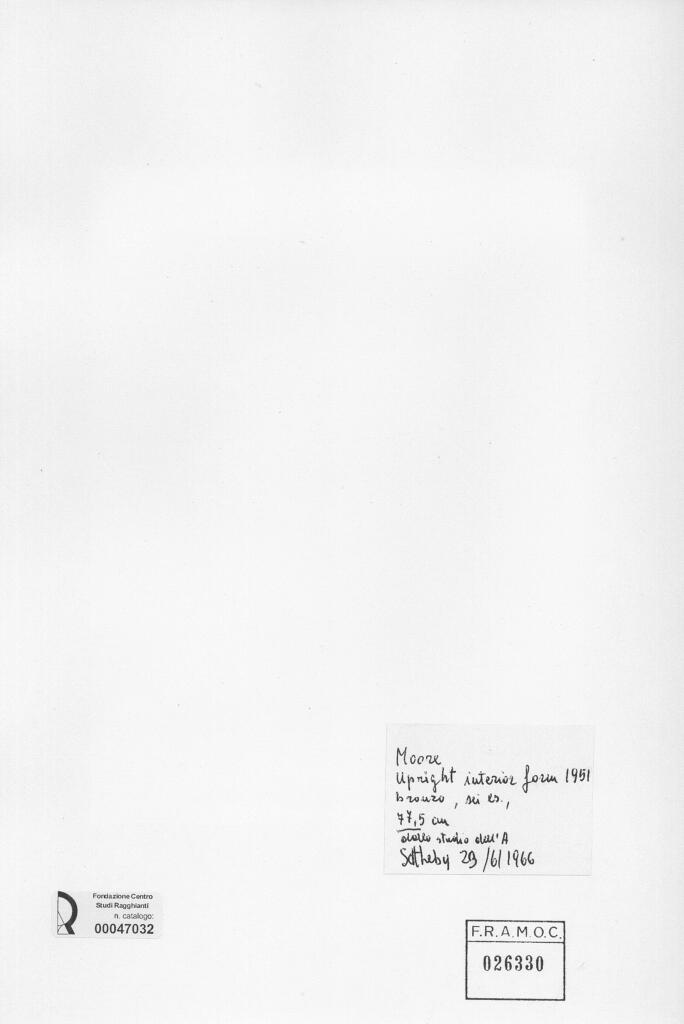 Moore
Upright interior form 1951
bronzo, sei es.,
77,5 cm
dallo studio dell'A
Sotheby 29/6/1966
Fondazione Centro
Studi Ragghianti
n. catalogo:
00047032
F.R.A.M.O.C.
026330